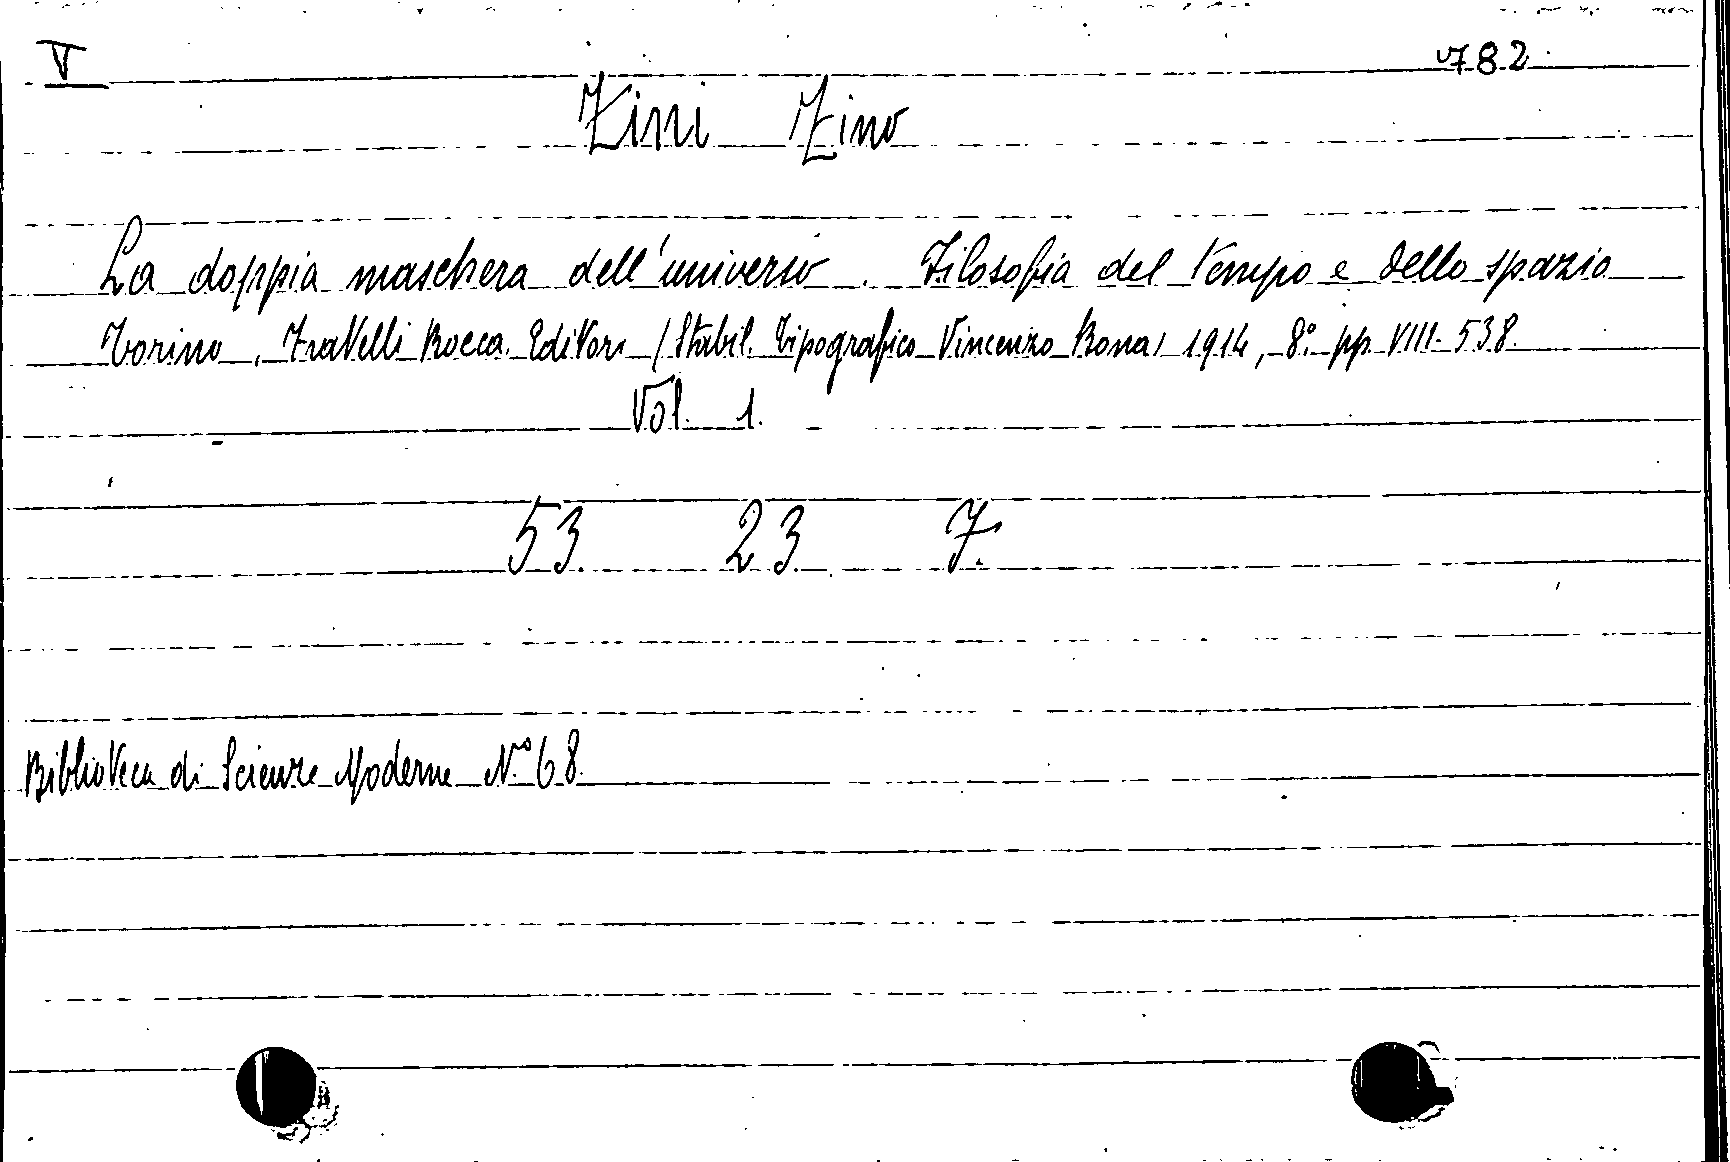 V 782
Zini Zino
La doppia maschera dell'universo. Filosofia del tempo e dello spazio
Torino, Fratelli Bocca Editori (Stabil. Tipografico Vincenzo Bona) 1914, 8° pp. VIII. 538.
Vol. 1.
53. 23 7.
Biblioteca di Scienze Moderne N.° 68.